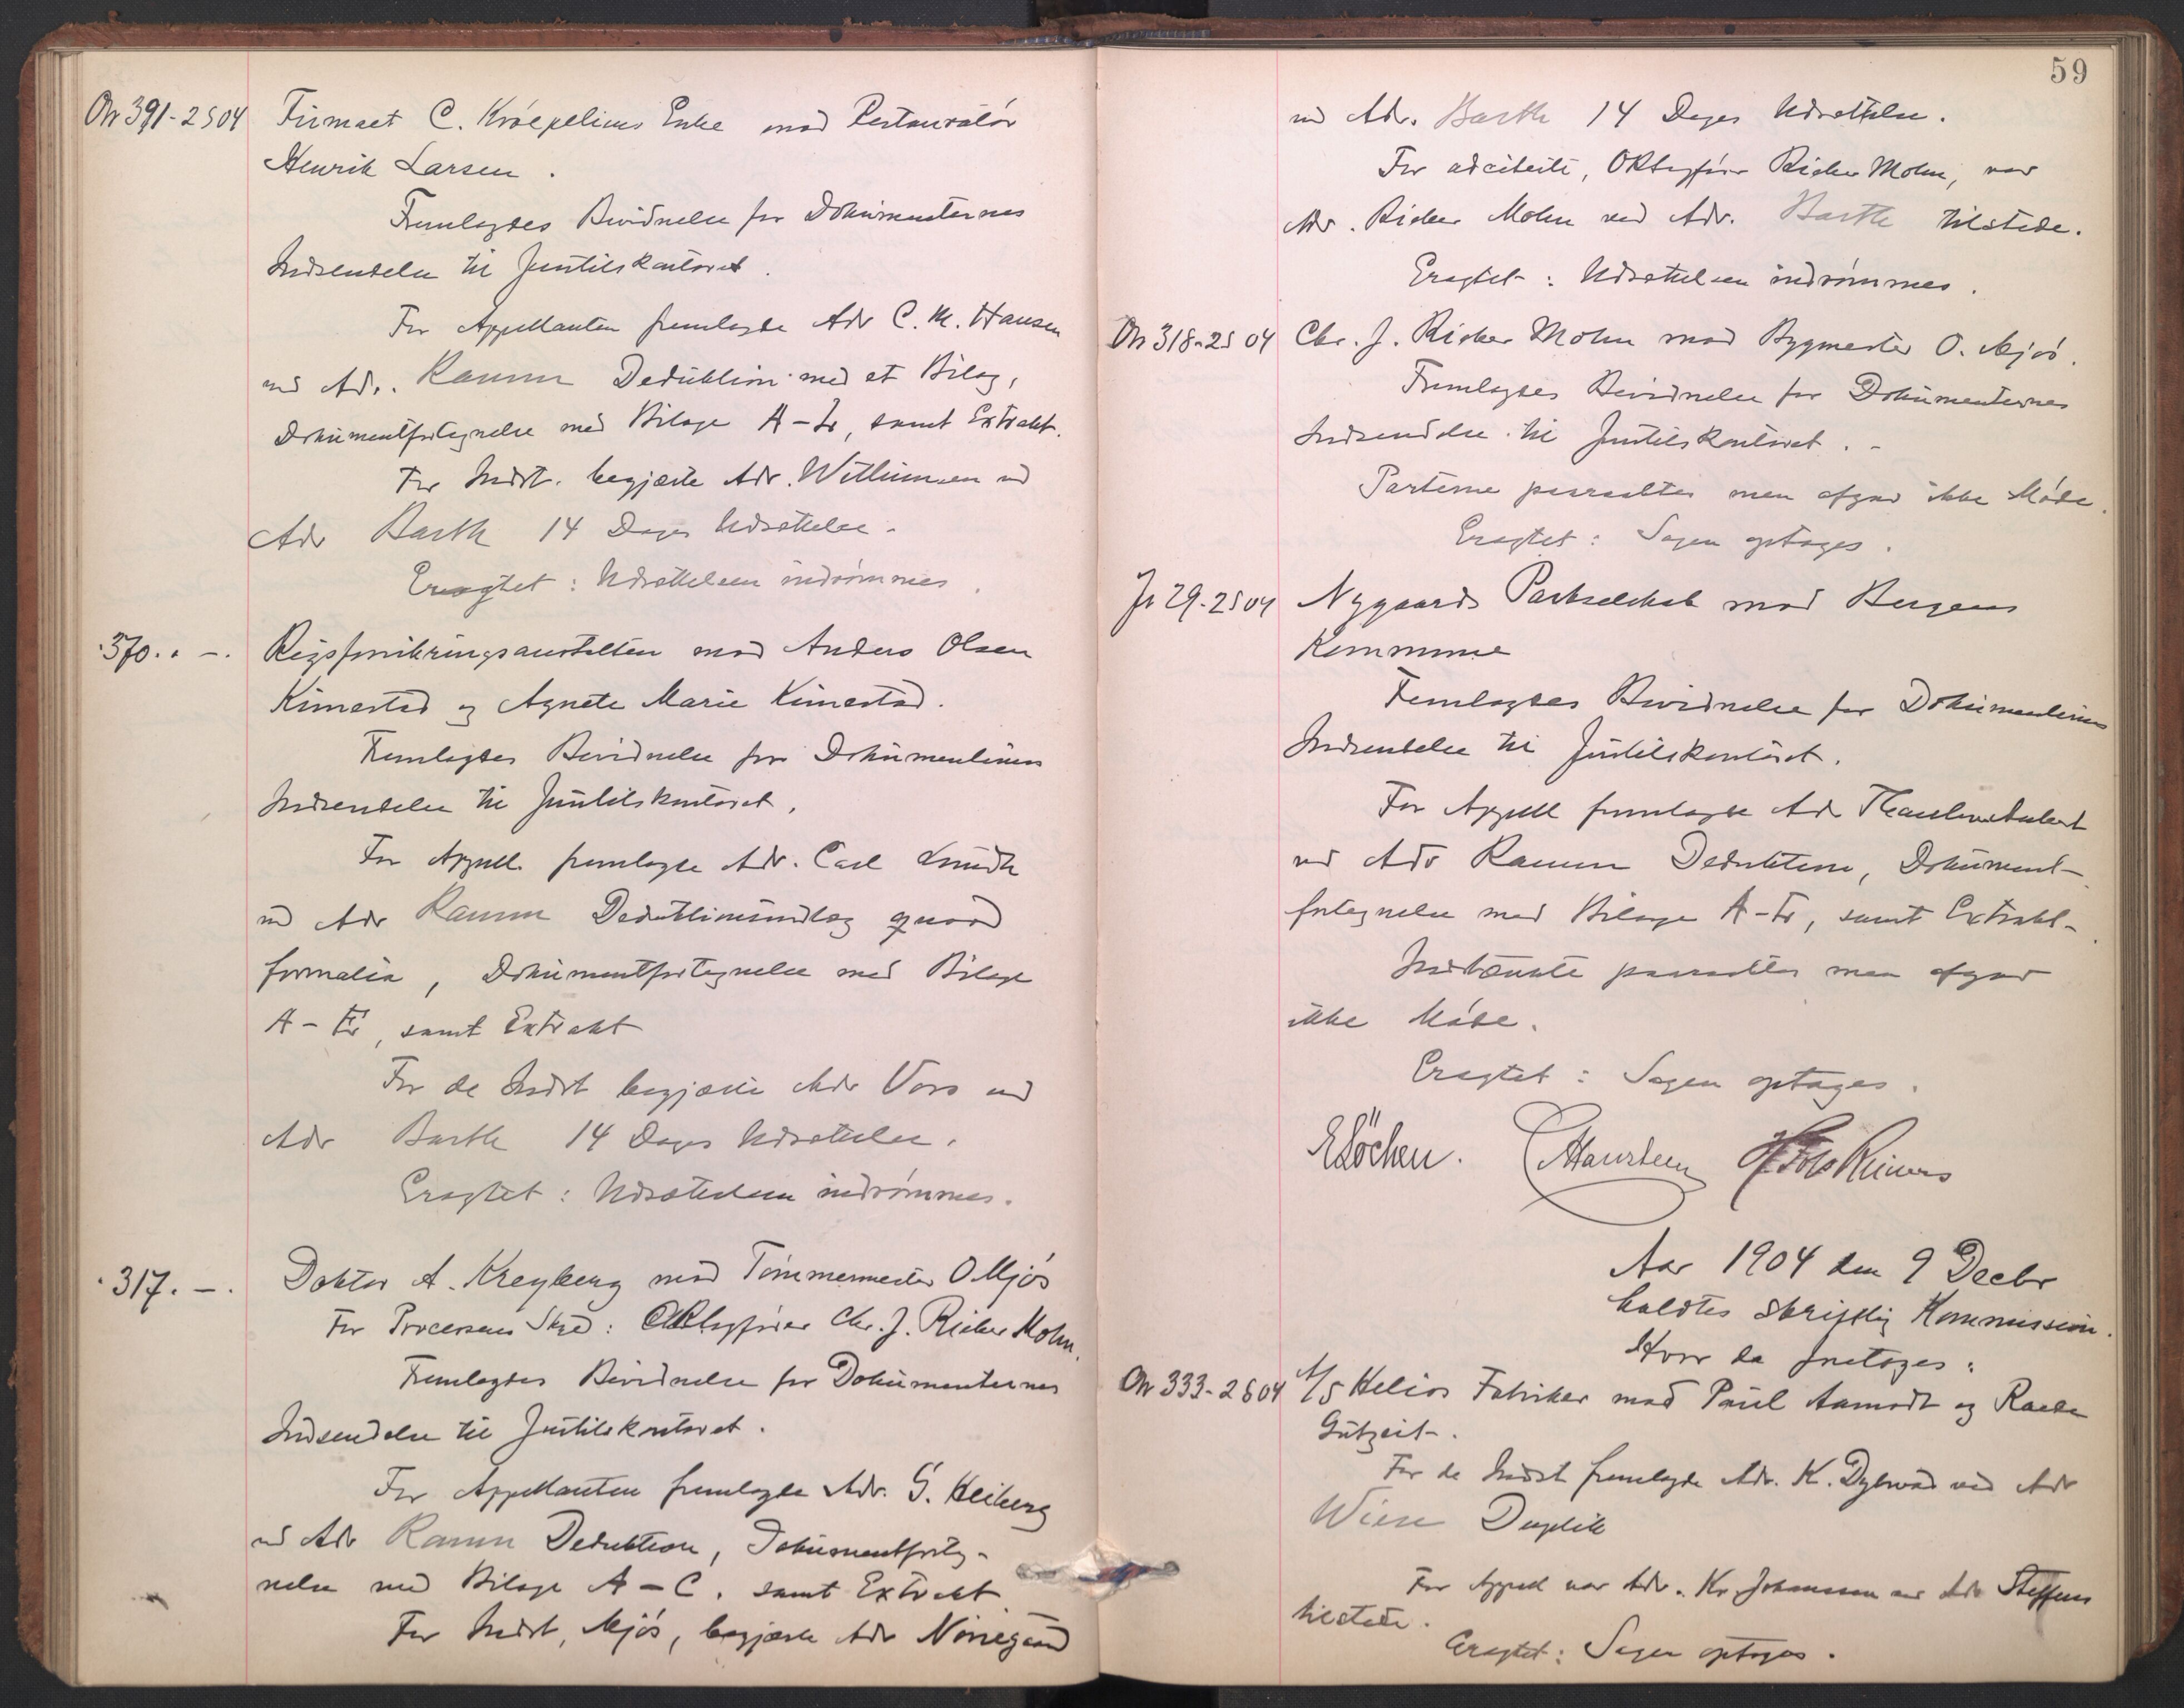 On 391-2S04 Firmaet C. Kröepelins Enke mod Restauratör
Henrik Larsen.
Fremlagdes Bevidnelse for Dokumenternes
Indsendelse til Justitskontoret.
For Appellanten fremlagde Adv C. M. Hansen
ved Adv. Ramm Deduktion med et Bilag,
Dokumentfortegnelse med Bilage samt Extrakt.
For Indst. begjærte Adv. ved
Adv Barth 14 Dages Udsættelse.
Eragtet: Udsættelsen indrömmes.
" 370. " -. Rigsforsikringsanstalten mod Anders Olsen
Kimestad og Agnete Marie Kimestad.
Fremlagdes Bevidnelse for Dokumenternes
Indsendelse til Justitskontoret.
For Appell. fremlagde Adv. Carl
ved Adv Ramm Deduktionsindlæg quoad
formalia, Dokumentfortegnelse med Bilage
A - E, samt Extrakt
For de Indst begjærte Adv Voss ved
Adv Barth 14 Dages Udsættelse.
Eragtet: Udsættelsen indrömmes.
" 317. -. Doktor A. Kreyberg mod Tömmermester O. Mjös
For Processens Skyld: ORsagförer Chr. J. Rieber Mohn.
Fremlagdes Bevidnelse for Dokumenternes
Indsendelse til Justitskontoret.
For Appellanten fremlagde Adv. G. Heiberg
ved Adv Ramm Deduktion, Dokumentforteg-
nelse med Bilage A - C. samt Extrakt
For Indst, Mjös, begjærte Adv Nörregaard
59
ved Adv. Barth 14 Dages Udsættelse.
For adciterte, ORsagförer Rieber Mohn, var
Adv. Rieber Mohn ved Adv. Barth tilstede.
Eragtet: Udsættelsen indrömmes.
On 318-2S04 Chr. J. Rieber Mohn mod Bygmester O. Mjös.
Fremlagdes Bevidnelse for Dokumenternes
Indsendelse til Justitskontoret. -
Parterne paaraabtes men afgav ikke Möde.
Eragtet: Sagen optages.
Jr 29-2S04 Nygaards Parkselskab mod Bergens
Kommune
Fremlagdes Bevidnelse for Dokumenternes
Indsendelse til Justitskontoret.
For Appell fremlagde Adv
ved Adv Ramm Deduktion, Dokument-
fortegnelse med Bilage A-E, samt Extrakt-
Indstævnte paaraabtes men afgav
ikke Möde.
Eragtet: Sagen optages.
E Löchen. CHansteen Reimers
Aar 1904 den 9 Decbr
holdtes skriftlig Kommission.
Hvor da foretoges:
On 333-2S04 A/S Helios Fabriker mod Paul Aamodt og
Gutzeit-.
For de Indst fremlagde Adv. K. Dybwad ved Adv
Wiese Duplik
For Appell var Adv. Kr. Johanssen ved Adv Steffens
tilstede.
Eragtet: Sagen optages.